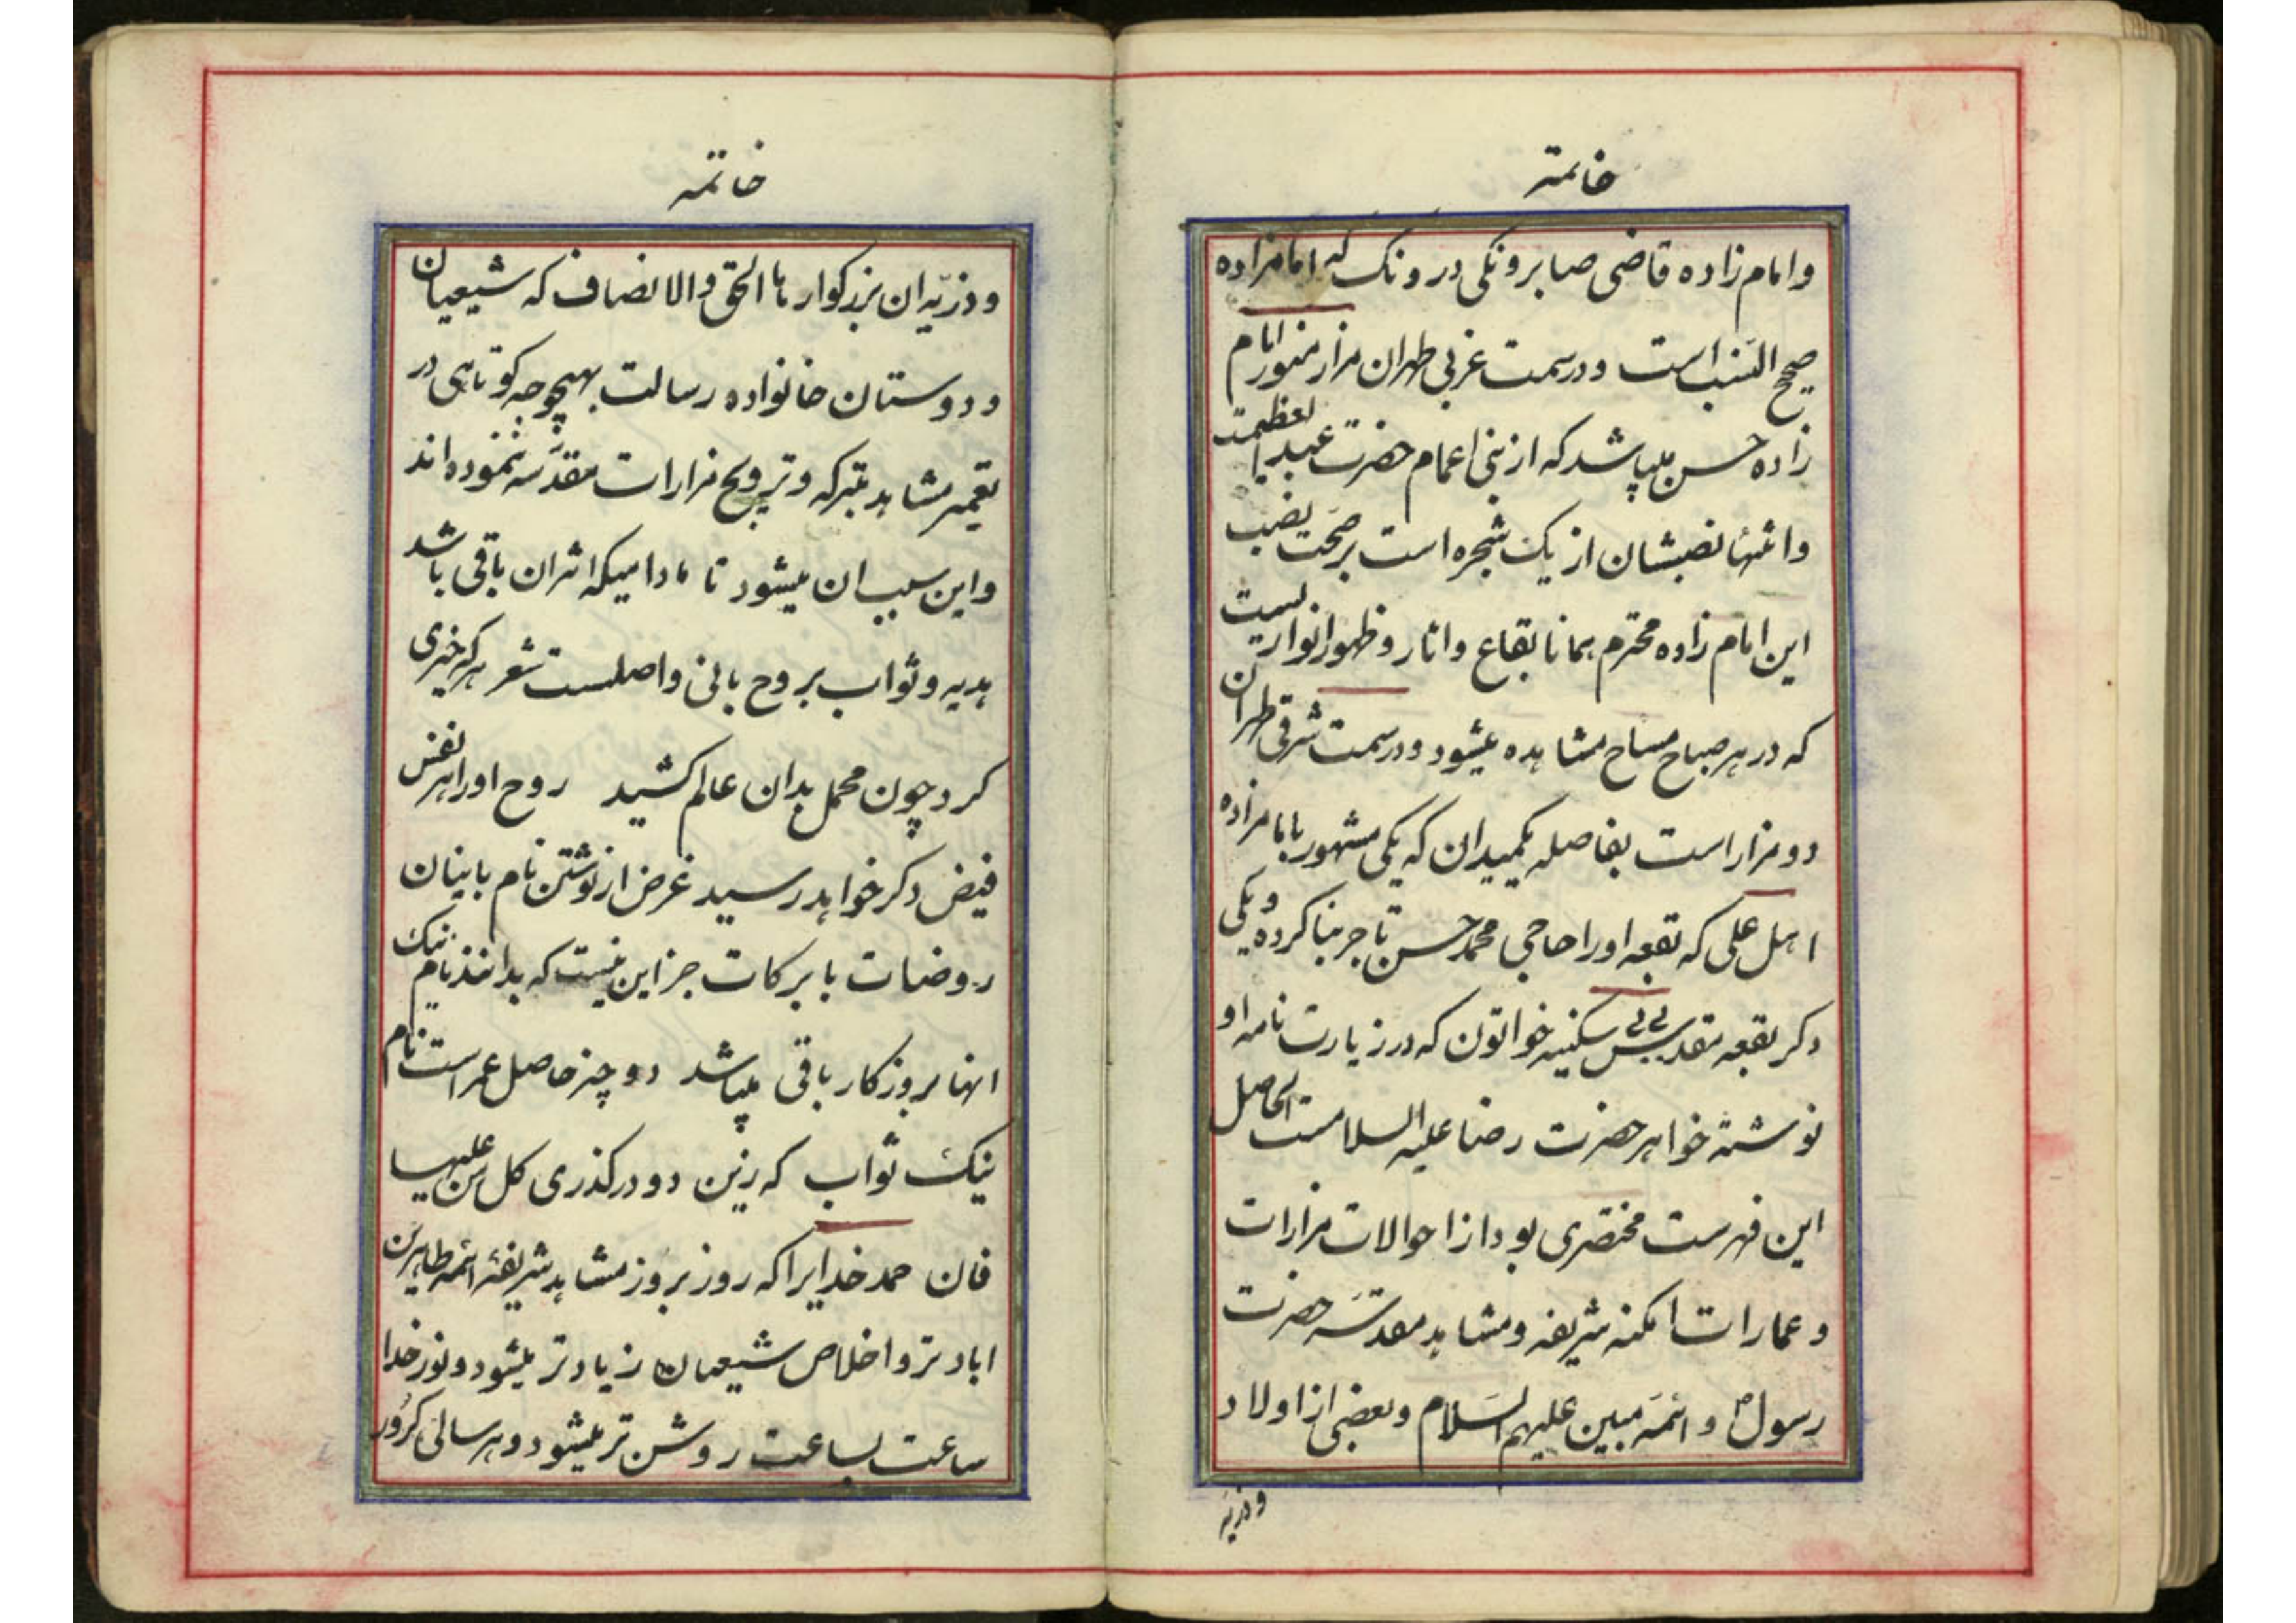 خاتمه
وامام زاده قاضی صابر ونکی در ونک که امامزاده
صحیح النسب است و در سمت غربی طهران مزار منور امام
زاده حسن میباشد که از بنی اعمام حضرت عبدالعظیمست
وانتها نصبشان از یک شجره است بر صحت نصب
این امام زاده محترم همانا بقاع واثار و ظهور انواریست
که در هر صباح مساح مشاهده میشود و در سمت شرقی طهران
دو مزار است بفاصله یکمیدان که یکی مشهور بامامزاده
اهل علی که بقعه او را حاجی محمد حسن تاجر بنا کرده و یکی
دکر بقعه مقدس بی بی سکنیه خواتون که در زیارت نامه او
نوشته خواهر حضرت رضا علیه السلامست الحاصل
این فهرست مختصری بود از احوالات مزارات
و عمارات امکنه شریفه و مشاهد مقدسه حضرت
رسول ص و ائمه مبین علیهم السلام و بعضی از اولاد
و ذریه
خاتمه
و ذریه ان بزرکوار ها الحق والانصاف که شیعیان
و دوستان خانواده رسالت بهیچوجه کوتاهی در
تعمیر مشاهد متبرکه و ترویح مزارات مقدسه ننموده اند
و این سبب ان میشود تا مادامیکه اثران باقی باشد
هدیه و ثواب بروح بانی واصلست شعر هر که خیری
کرد چون محمل بدان عالم کشید روح او را هر نفس
فیض دکر خواهد رسید غرض از نوشتن نام بانیان
روضات با برکات جز این نیست که بدانند نام نیک
انها بروزکار باقی میباشد دو چیز حاصل عمر است نام
نیک ثواب که زین دو درکذری کل من علیها
فان حمد خدایرا که روز بروز مشاهد شریفه ائمه طاهرین
اباد تر و اخلاص شیعیان زیادتر میشود و نور خدا
ساعت بساعت روشن تر میشود و هر سالی کرور